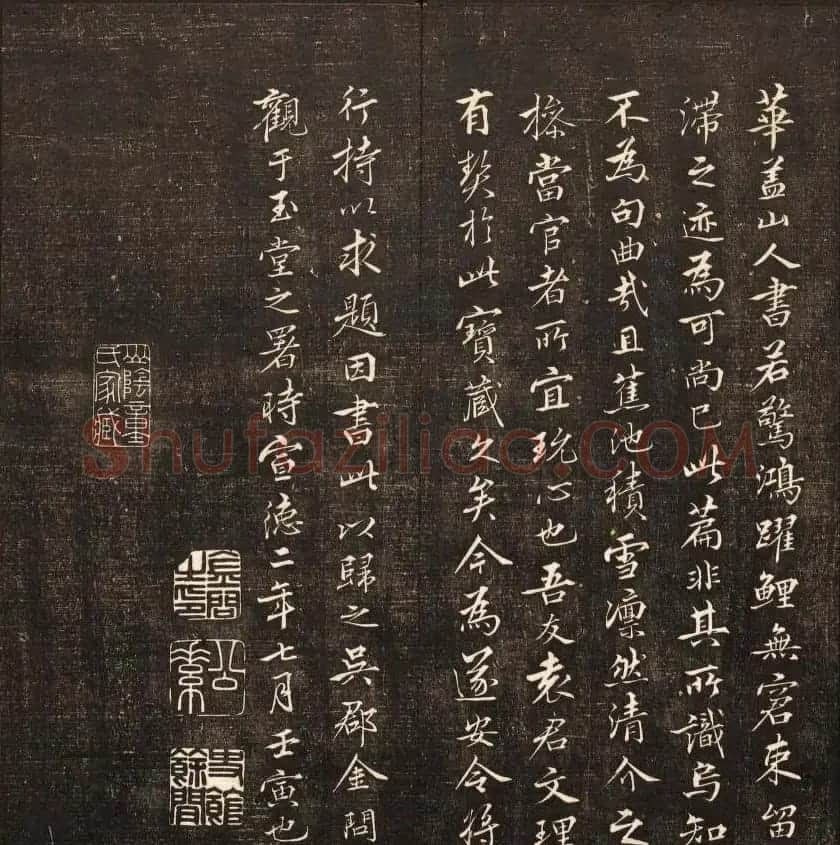 華盖山人書若驚鴻躍鯉無窘束留
滞之迹為可尚已此篇非其所識烏知
不為句曲哉且蕉池積雪凛然清介之
操當官者所宜玩心也吾友袁君文理
有契於此寶蔵久矣今為遂安令将
行持以求題因書此以歸之吳郡金問
觀于玉堂之署時宣德二年七月壬寅也
山陰童
氏家藏
公素
史館
餘閒
Shufaziliao.COM